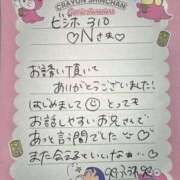 CRAYON SHINCHAN
ビジホ 310
♡Nさま♡
お誘い頂いて
ありがとうございました!
はじめまして☺とっても
お話しやすいお兄さんで
あっと言う間でした♡
また会えるといいなぁ…♡